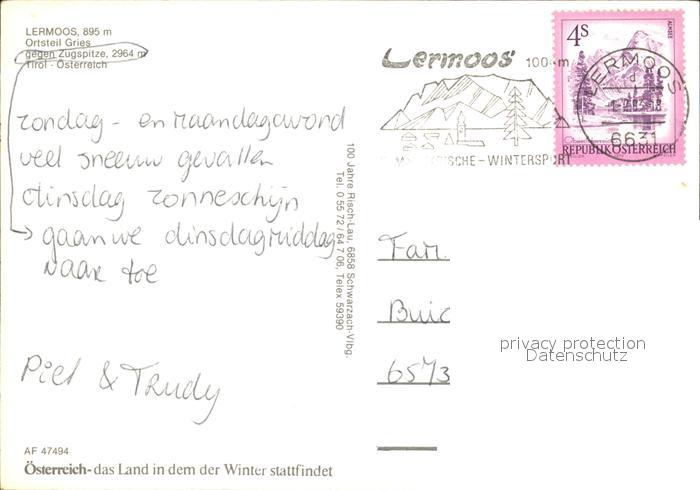 LERMOOS, 895 m
Ortsteil Gries
gegen Zugspitze, 2964 m
Tirol - Österreich
zondag - en maandagavond
veel sneeuw gevallen
dinsdag zonneschijn
gaan we dinsdagmiddag
naar toe
Piet & Trudy
AF 47494
Österreich - das Land in dem der Winter stattfindet
100 Jahre Risch-Lau, 6858 Schwarzach-Vlbg.
Tel. 0 55 72 / 64 7 06, Telex 59390
Lermoos
100 m
WINTERSPORT
4S
ALMSEE
REPUBLIK ÖSTERREICH
LERMOOS
6631
Fam.
Buic
6573
privacy protection
Datenschutz